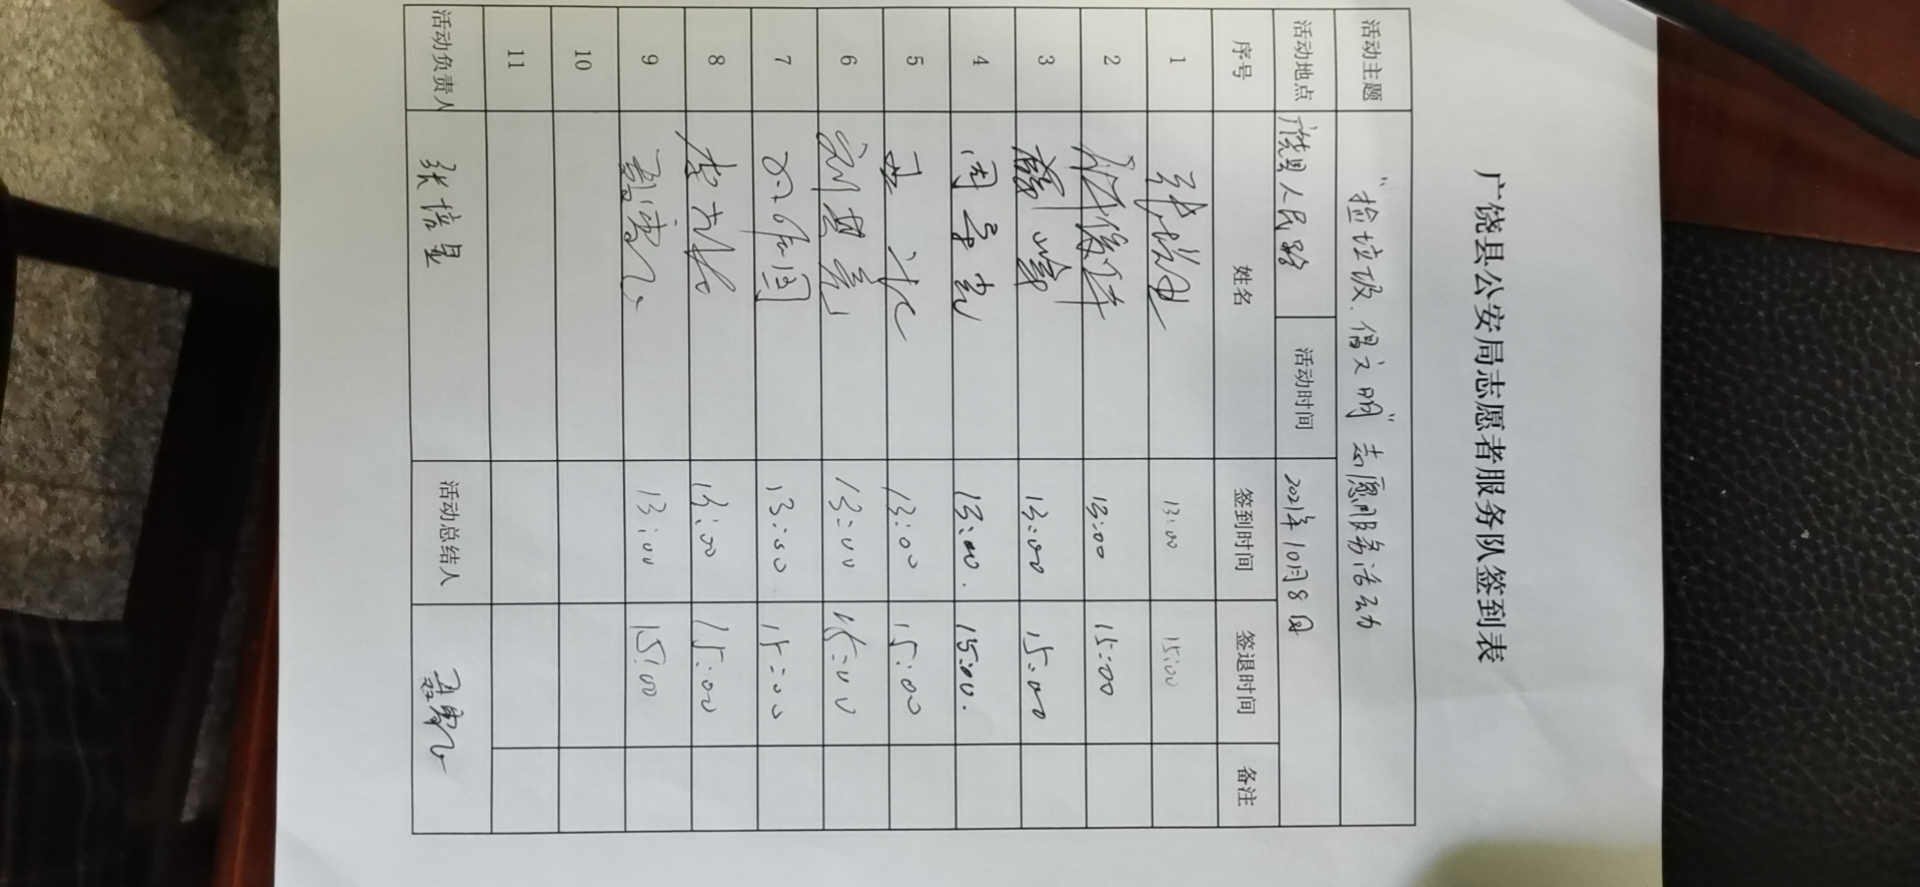 广饶县公安局志愿者服务队签到表
活动主题 “捡垃圾、倡文明”志愿服务活动
活动地点 广饶县人民路 活动时间 2021年10月8日
序号 姓名 签到时间 签退时间 备注
1 13:00 15:00
2 13:00 15:00
3 13:00 15:00
4 13:00. 15:00.
5 13:00 15:00
6 13:00 15:00
7 13:00 15:00
8 13:00 15:00
9 13:00 15:00
10
11
活动负责人 张培星 活动总结人